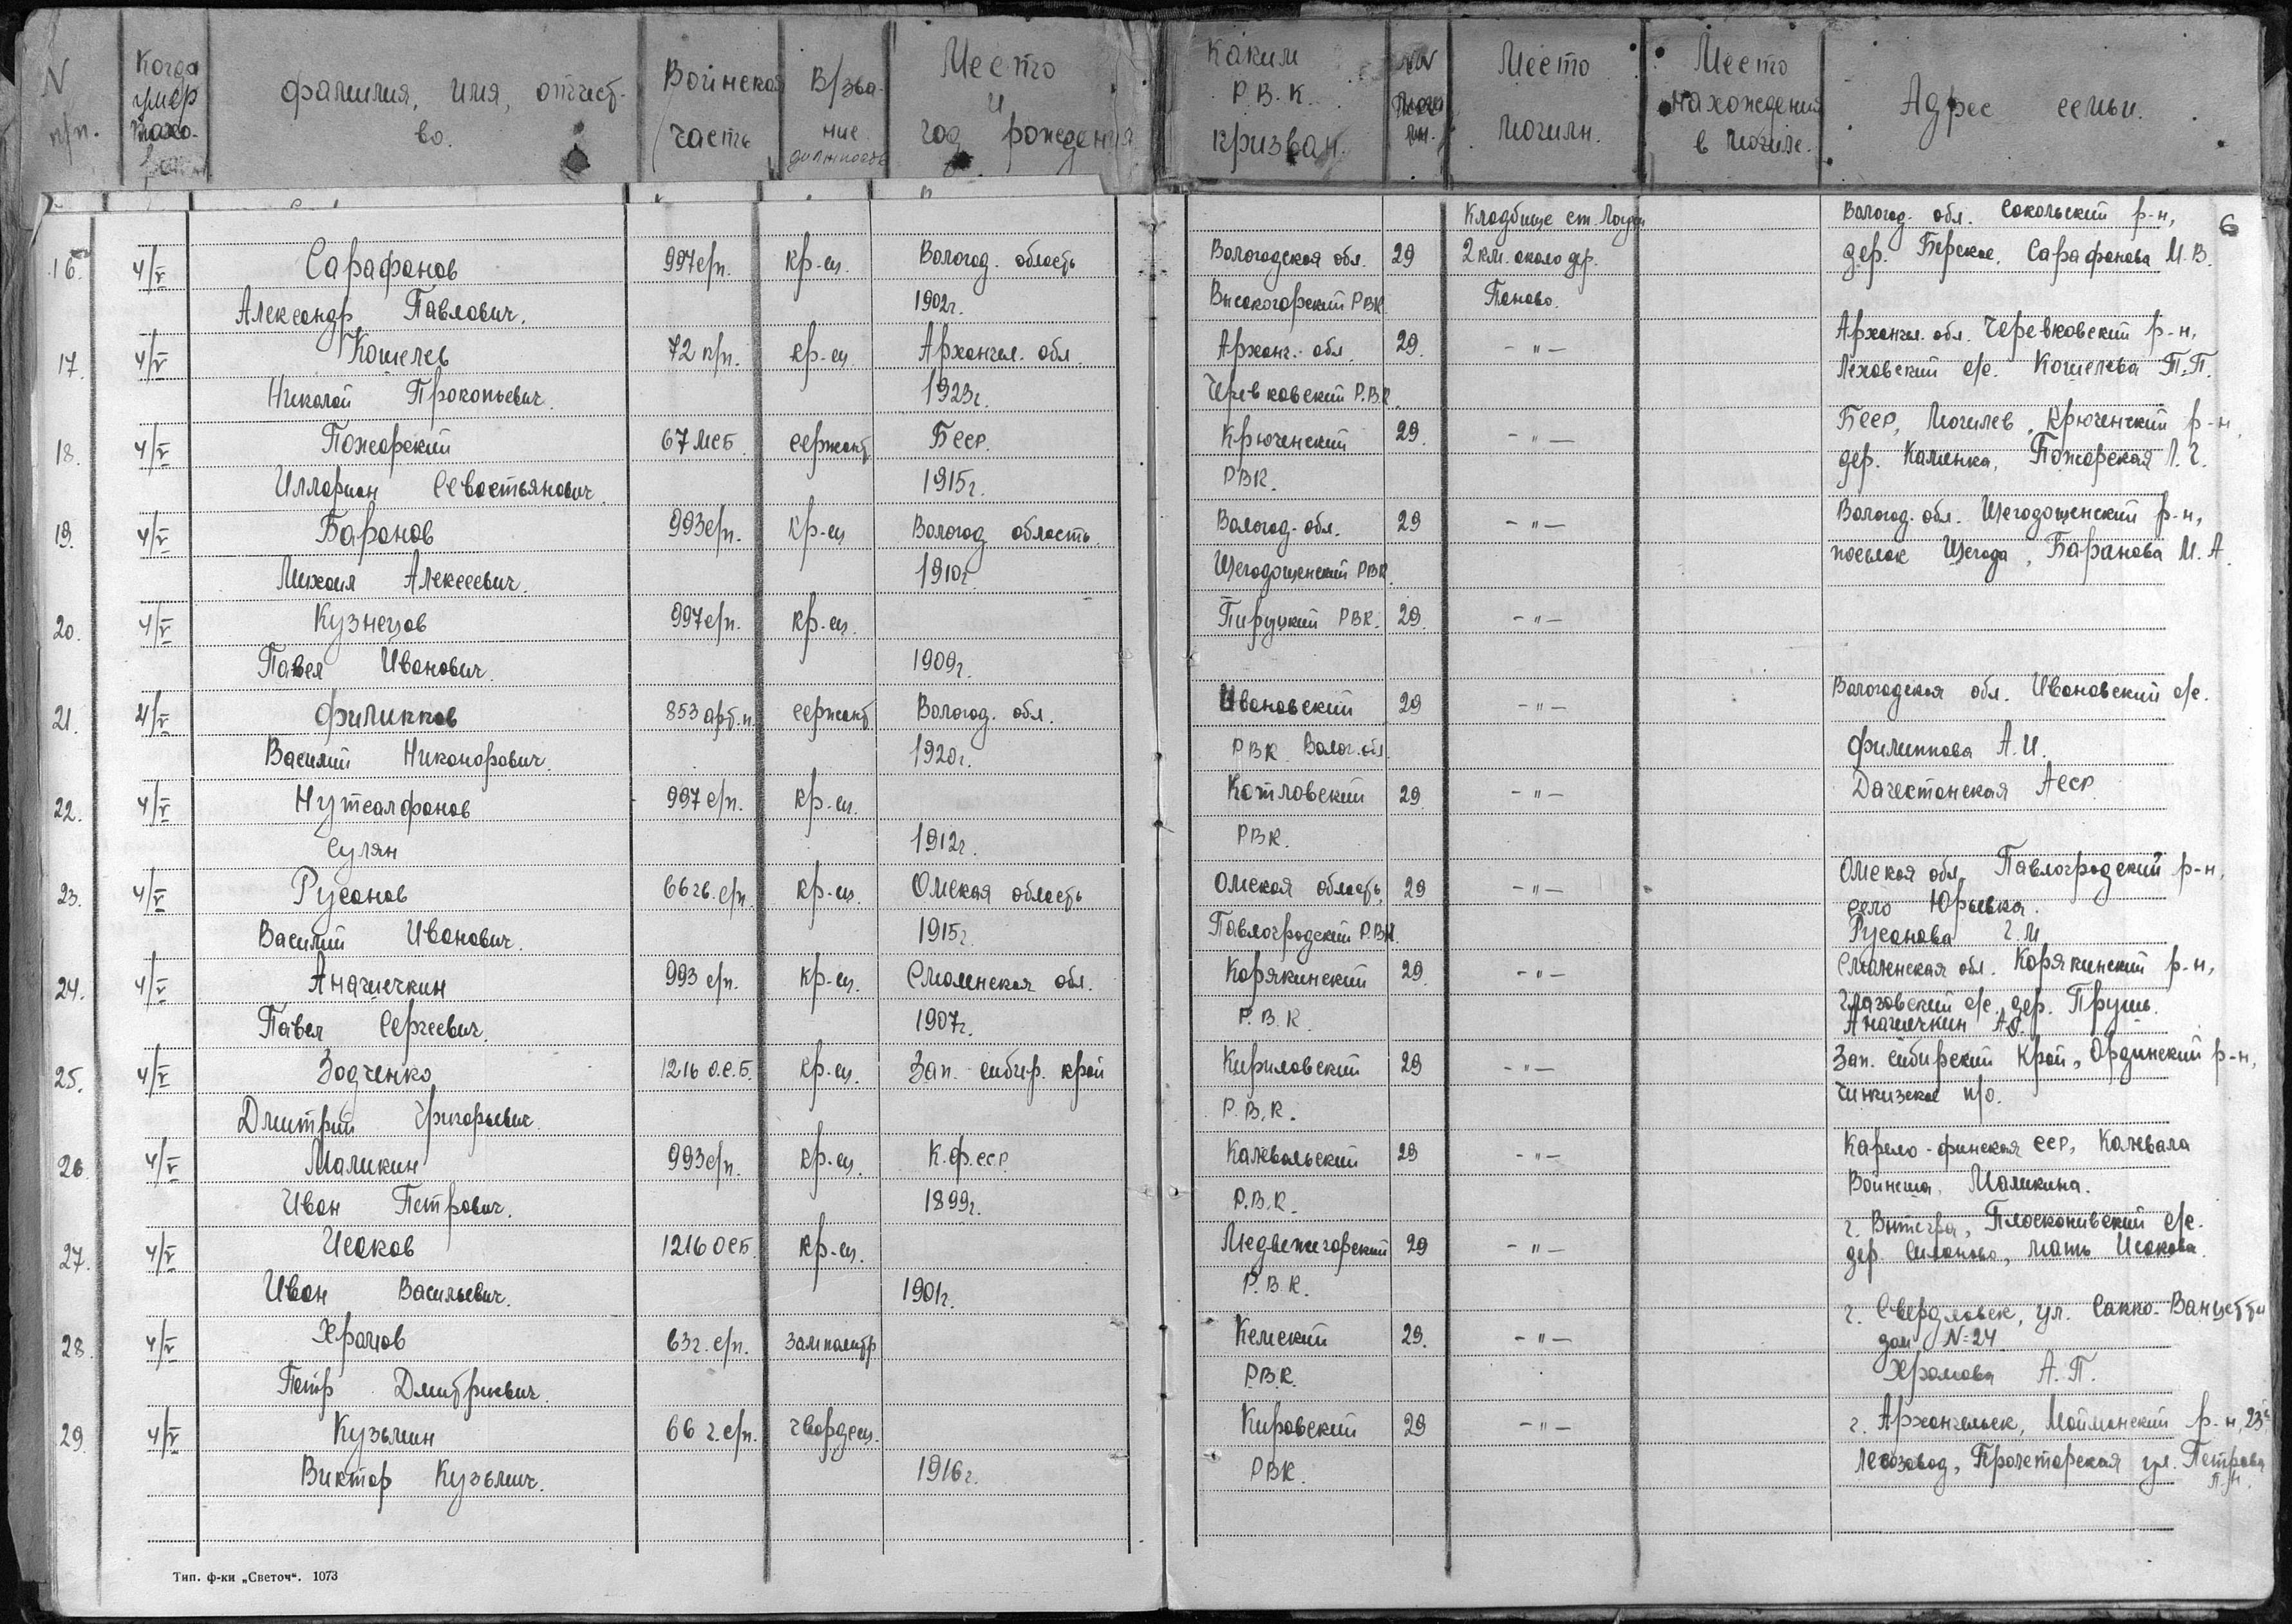 N п/п.
Когда умер
фамилия, имя, отчест-во.
Воинская часть
В/зва-ние должность
Место и год рождения
Каким Р.В.К. призван.
Место могилы.
Место нахождения в могиле.
Адрес семьи.
6
Кладбище ст. Вологод. обл. Сокольский р-н,
16. 4/V Сарафанов 997 с/п. кр-ец. Вологод. область Вологодская обл. 29 2 км. около дер. дер. Сарафанова М.В.
Александр Павлович. 1902г. Высокогорский РВК. Паново.
Арханг. обл. Черевковский р-н,
17. 4/V Кошелев 72 п/п. кр-ец Арханге. обл. Арханг. обл. 29. -"- с/с. Кошелева П.П.
Николай Прокопьевич. 1923г. Черевковский Р.В.К.
БССР, Могилев, Крюченский р-н,
18. 4/V Пожарский 67 МСБ. сержант БССР. Крюченский 29. -"- дер. Каменка, Пожарская
Илларион Севостьянович. 1915г. РВК.
Вологод. обл. Щегодощенский р-н,
19. 4/V Баранов 993 с/п. кр-ец Вологод область. Вологод. обл. 29 -"- поселок Щегода, Баранова М.А.
Михаил Алексеевич. 1910г. Щегодощенский РВК.
20. 4/V Кузнецов 997 с/п. кр-ец. РВК. 29. -"-
Павел Иванович. 1909г.
Вологодская обл. Ивановский с/с.
21. 4/V Филиппов 853 арт.п. сержант Вологод. обл. Ивановский 29 -"-
Василий Никонорович. 1920г. РВК Волог. обл. Филиппова А.И.
22. 4/V Нутсалфанов 997 с/п. кр-ец. Котловский 29. -"- Дагестанская АССР.
Сулян 1912г. РВК.
Омская обл. Павлоградский р-н,
23. 4/V Русанов 66 гв. с/п. кр-ец. Омская область Омская область, 29 -"- село Юрьевка.
Василий Иванович. 1915г. Павлоградский Р.В.К. Русанова Г.М
Смоленская обл. Корякинский р-н,
24. 4/V Анашечкин 993 с/п. кр-ец. Смоленская обл. Корякинский 29. -"- Глазовский с/с. дер.
Павел Сергеевич. 1907г. Р.В.К. Анашечкин
25. 4/V Зодченко 1216 О.С.Б. кр-ец. Зап. сибир. край Кириловский 29 -"- Зап. сибирский Край, Ордынский р-н,
Дмитрий Григорьевич. Р.В.К. Чингизское п/о.
26. 4/V Маликин 993 с/п. кр-ец. К.Ф.ССР Калевальский 29 -"- Карело-финская ССР, Калевала
Иван Петрович. 1899г. Р.В.К. Маликина.
г. Вытегра, с/с.
27. 4/V Исаков 1216 ОСБ. кр-ец. Медвежегорский 29 -"- дер. Силаново, мать Исакова.
Иван Васильевич. 1901г. Р.В.К.
г. Свердловск, ул. Сакко-Ванцетти
28. 4/V Храмов 63 г. с/п. Зампомнтр Кемский 29. -"- дом N=24
Петр Дмитриевич. Р.В.К. Храмова А.П.
29. 4/V Кузьмин 66 г. с/п. гвардеец. Кировский 29 -"- г. Архангельск, Маймакский р-н, 23й
Виктор Кузьмич. 1916г. РВК. лесозавод, Пролетарская ул. Петрова П.Н.
Тип. ф-ки „Светоч“. 1073